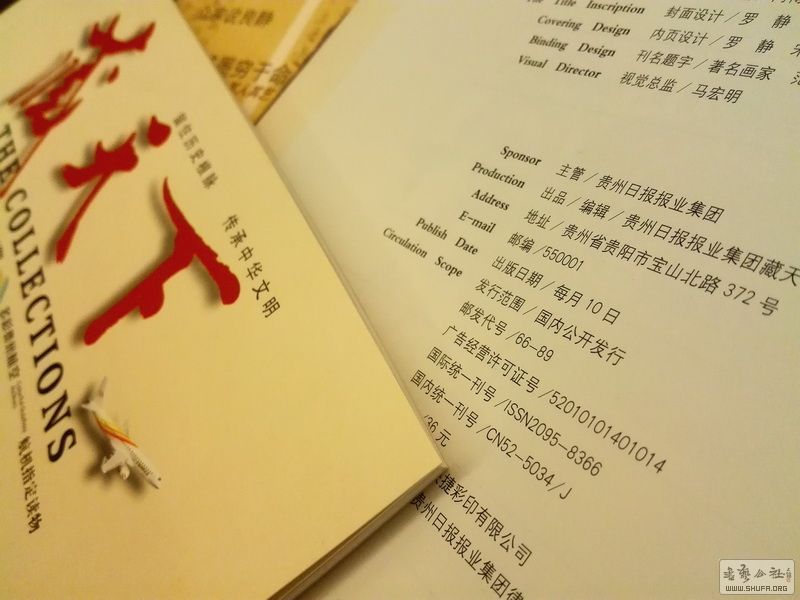 藏天下
THE COLLECTIONS
留住历史根脉
传承中华文明
多彩贵州航空
航机指定读物
Title Inscription 封面设计／罗 静
Covering Design 内页设计／罗 静
Binding Design 刊名题字／著名画家
Visual Director 视觉总监／马宏明
Sponsor 主管／贵州日报报业集团
Production 出品／编辑／贵州日报报业集团藏天
Address 地址／贵州省贵阳市宝山北路 372 号
E-mail 邮编/550001
Publish Date 出版日期／每月 10 日
Circulation Scope 发行范围／国内公开发行
邮发代号/66-89
广告经营许可证号/52010101401014
国际统一刊号/ISSN2095-8366
国内统一刊号/CN52-5034/J
/36 元
捷彩印有限公司
贵州日报报业集团律
WWW.SHUFA.ORG